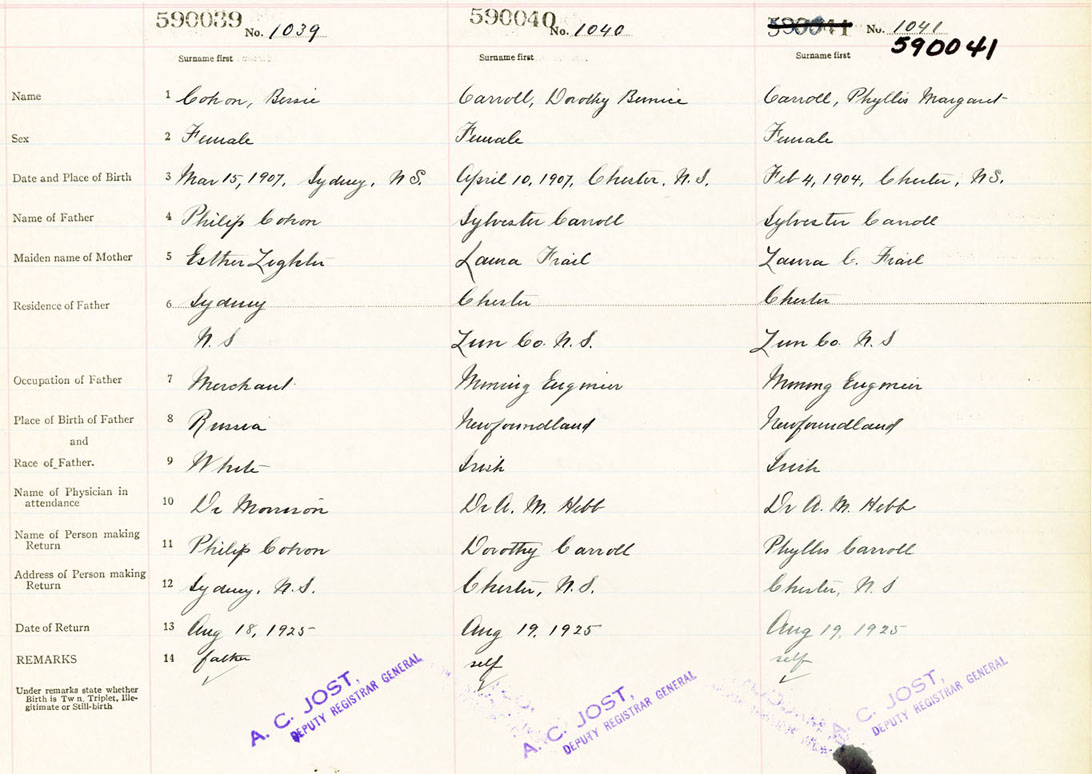 590039 No. 1039 590040 No. 1040 No. 1041
590041
Surname first Surname first Surname first
Name 1 Cohon, Bessie Carroll, Dorothy Bernice Carroll, Phyllis Margaret
Sex 2 Female Female Female
Date and Place of Birth 3 Mar 15, 1907, Sydney, N.S. April 10, 1907, Chester, N.S. Feb 4, 1904, Chester, N.S.
Name of Father 4 Philip Cohon Sylvester Carroll Sylvester Carroll
Maiden name of Mother 5 Esther Laura Frail Laura C. Frail
Residence of Father 6 Sydney Chester Chester
N.S Lun Co. N.S. Lun Co. N.S
Occupation of Father 7 Merchant Mining Engineer Mining Engineer
Place of Birth of Father 8 Russia Newfoundland Newfoundland
and
Race of Father. 9 White Irish Irish
Name of Physician in attendance 10 Dr Morrison Dr A. M. Hebb Dr A. M. Hebb
Name of Person making Return 11 Philip Cohon Dorothy Carroll Phyllis Carroll
Address of Person making Return 12 Sydney, N.S. Chester, N.S. Chester, N.S
Date of Return 13 Aug 18, 1925 Aug 19, 1925 Aug 19, 1925
REMARKS 14 father self self
Under remarks state whether
Birth is Tw n, Triplet, Ille-
gitimate or Still-birth
A. C. JOST, A. C. JOST, A. C. JOST,
DEPUTY REGISTRAR GENERAL DEPUTY REGISTRAR GENERAL DEPUTY REGISTRAR GENERAL